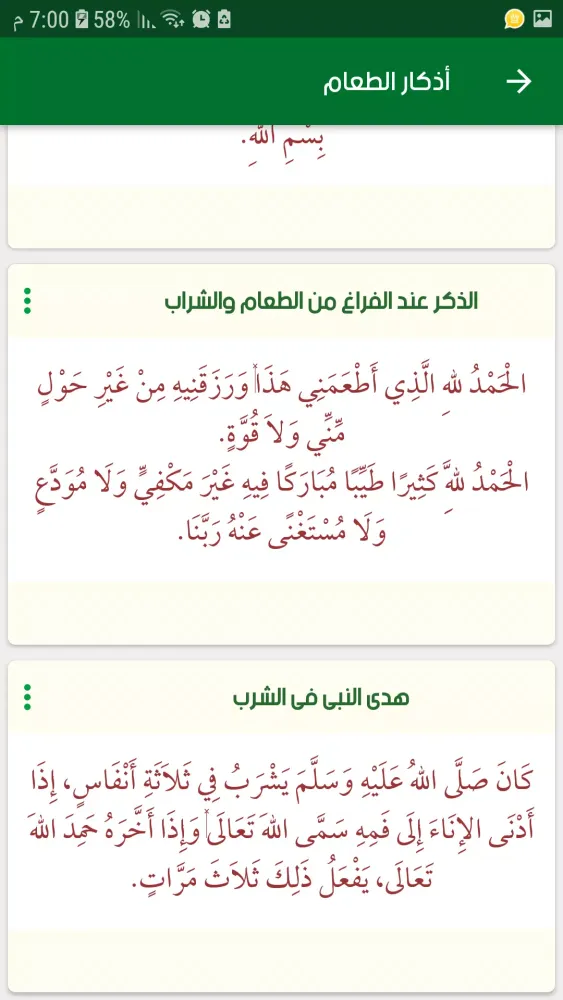 7:00 م 58%
أذكار الطعام
بِسْمِ اللهِ.
الذكر عند الفراغ من الطعام والشراب
الْحَمْدُ للهِ الَّذِي أَطْعَمَنِي هَذَا وَرَزَقَنِيهِ مِنْ غَيْرِ حَوْلٍ
مِّنِّي وَلاَ قُوَّةٍ.
الْحَمْدُ للهَِّ كَثِيرًا طَيِّبًا مُبَارَكًا فِيهِ غَيْرَ مَكْفِيٍّ وَلَا مُوَدَّعٍ
وَلَا مُسْتَغْنًى عَنْهُ رَبَّنَا.
هدى النبى فى الشرب
كَانَ صَلَّى اللهُ عَلَيْهِ وَسَلَّمَ يَشْرَبُ فِي ثَلاَثَةِ أَنْفَاسٍ، إِذَا
أَدْنَى الإِنَاءَ إِلَى فَمِهِ سَمَّى اللهَ تَعَالَى وَإِذَا أَخَّرَهُ حَمِدَ اللهَ
تَعَالَى، يَفْعَلُ ذَلِكَ ثَلاَثَ مَرَّاتٍ.